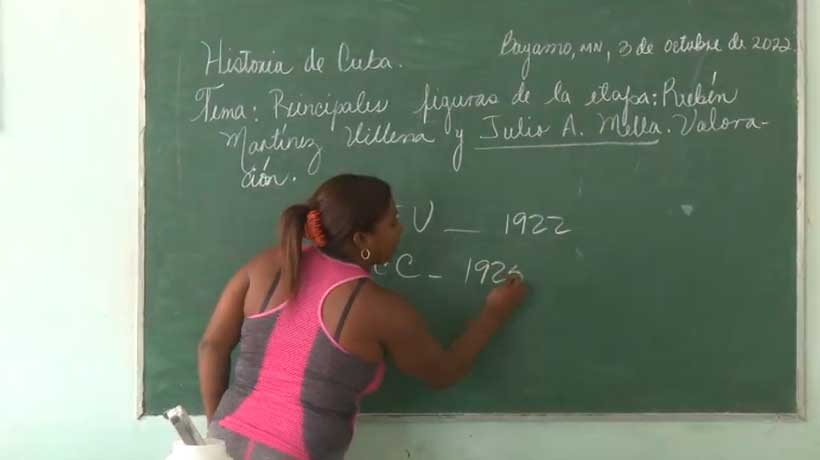 Historia de Cuba.
Bayamo, MN, 3 de octubre de 2022.
Tema: Principales figuras de la etapa: Rubén
Martínez Villena y Julio A. Mella. Valora-
ción.
EU — 1922
CC - 192